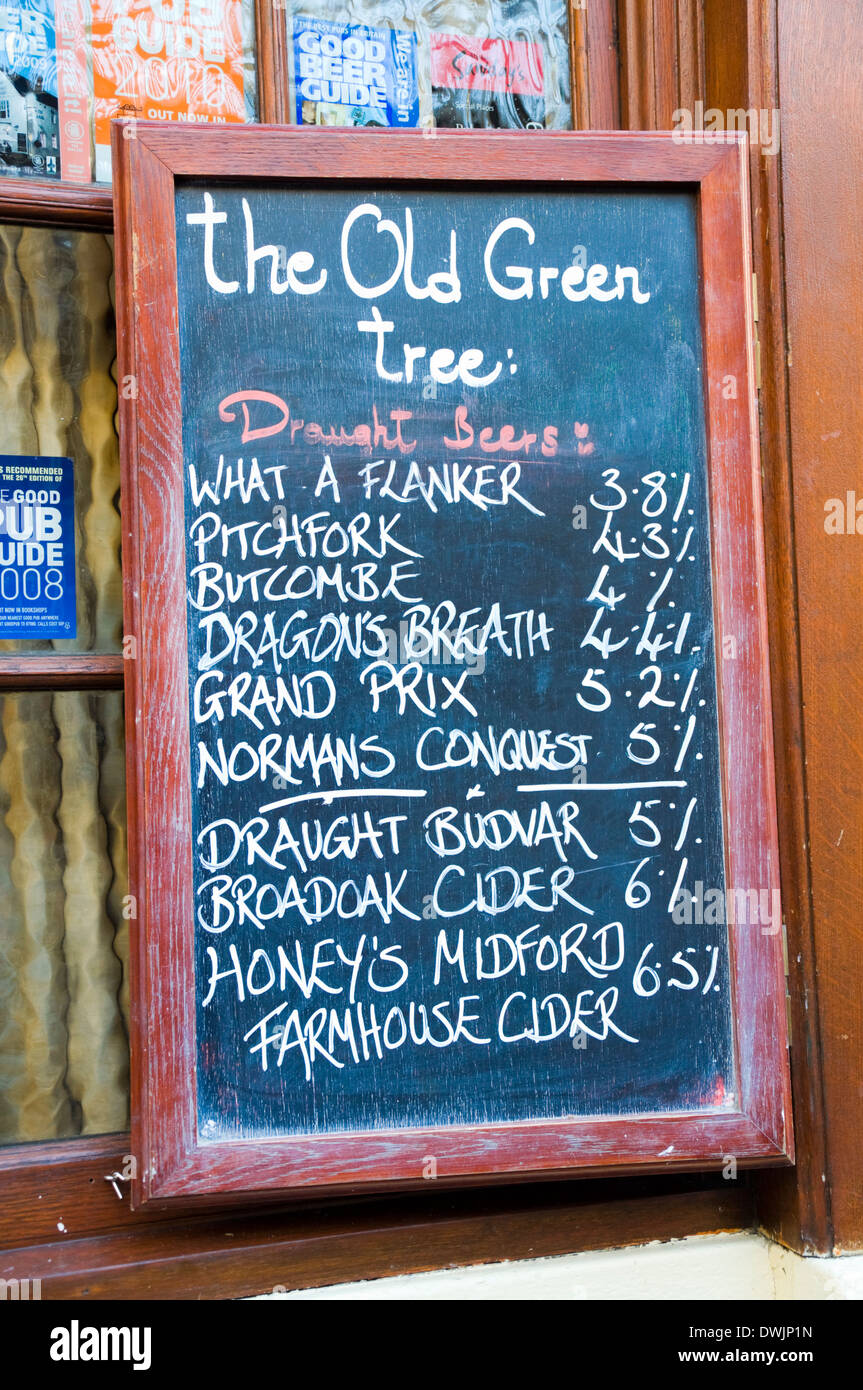 2009
PUB
GUIDE
2010
OUT NOW IN
GOOD
BEER
GUIDE
we are in
Sundays
Special Places
the Old Green
tree:
Draught Beers:
WHAT A FLANKER 3.8%
PITCHFORK 4.3%
BUTCOMBE 4%
DRAGON'S BREATH 4.4%
GRAND PRIX 5.2%
NORMANS CONQUEST 5%
DRAUGHT BUDVAR 5%
BROADOAK CIDER 6%
HONEY'S MIDFORD 6.5%
FARMHOUSE CIDER
RECOMMENDED
THE 26th EDITION OF
GOOD
PUB
UIDE
2008
alamy
Image ID: DWJP1N
www.alamy.com